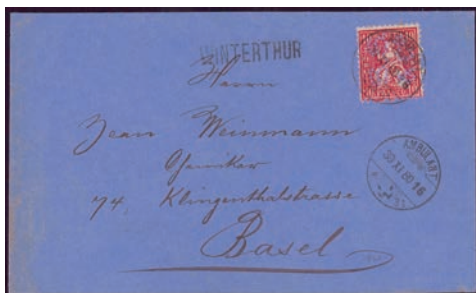 WINTERTHUR
Herrn
Jean Weinmann
Chemiker
74, Klingenthalstrasse
Basel
AMBULANT
30 XI 80 16